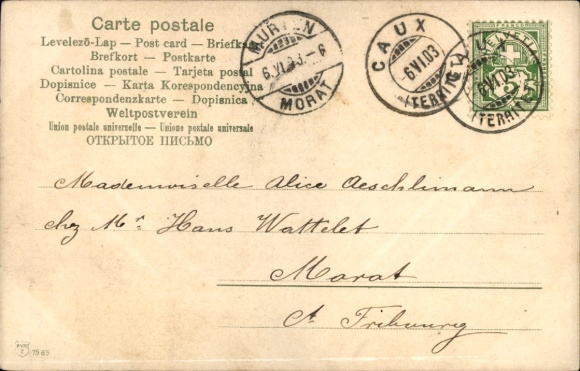 Carte postale
Levelezõ-Lap — Post card — Briefkaart
Brefkort — Postkarte
Cartolina postale — Tarjeta postal
Dopisnice — Karta Korespondencyjna
Correspondenzkarte — Dopisnica
Weltpostverein
Union postale universelle — Unione postale universale
ОТКРЫТОЕ ПИСЬМО
MURTEN
6.VI.03.-6
MORAT
CAUX
-6.VI.03
(TERRITET)
HELVETIA
5
CAUX
VI.03
(TERRITET)
Mademoiselle Alice Aeschlimann
chez Mr Hans Wattelet
Morat
Ct Fribourg
7565